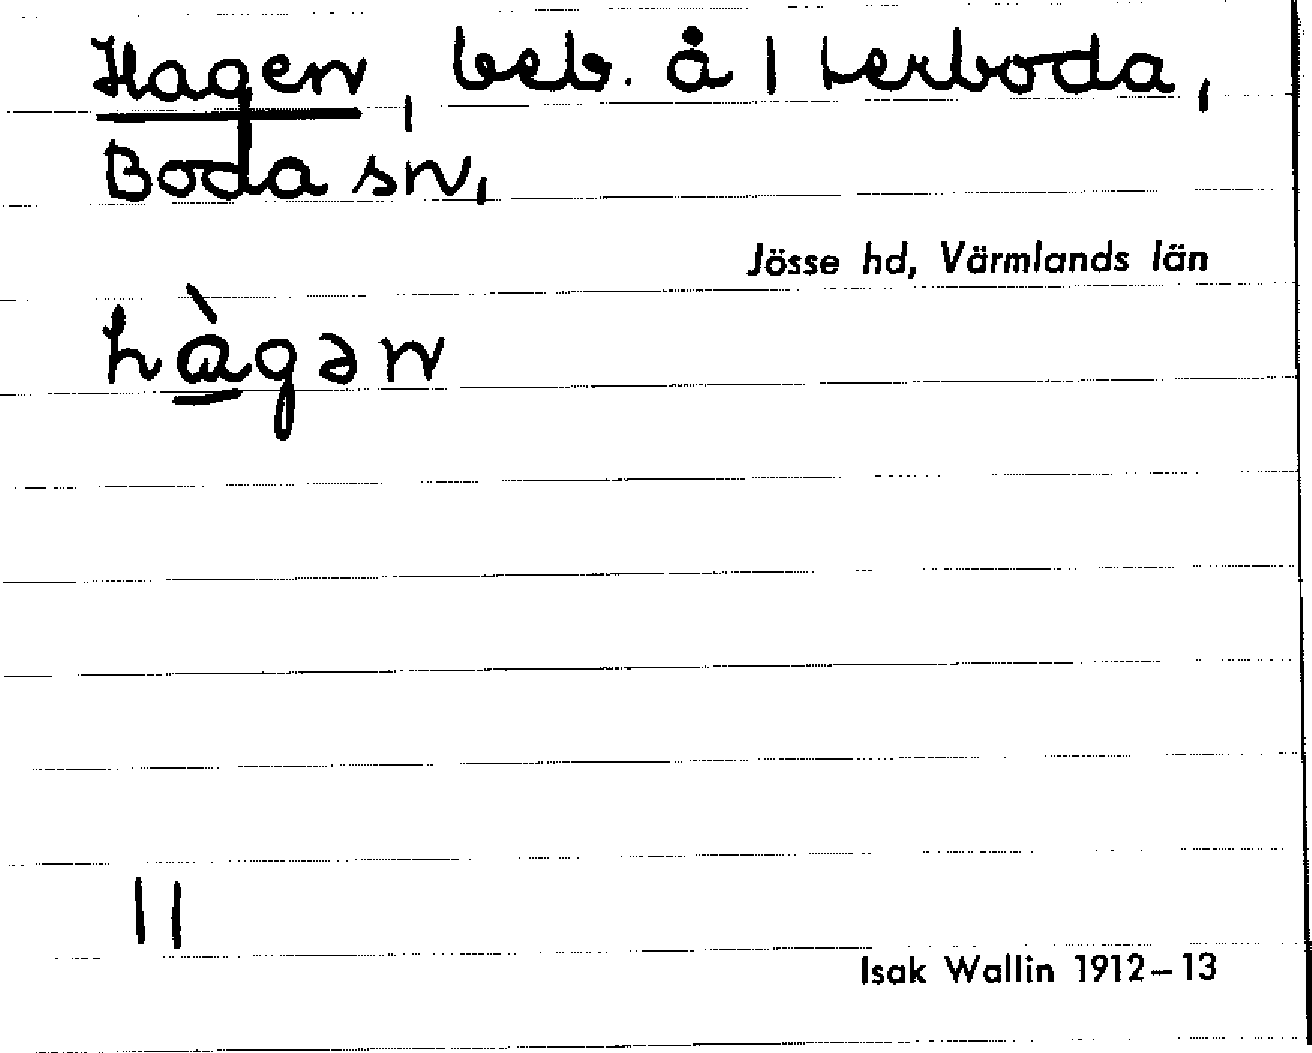 Hagen, beb. å 1 Lerboda,
Boda sn,
Jösse hd, Värmlands län
hàgən
11
Isak Wallin 1912–13